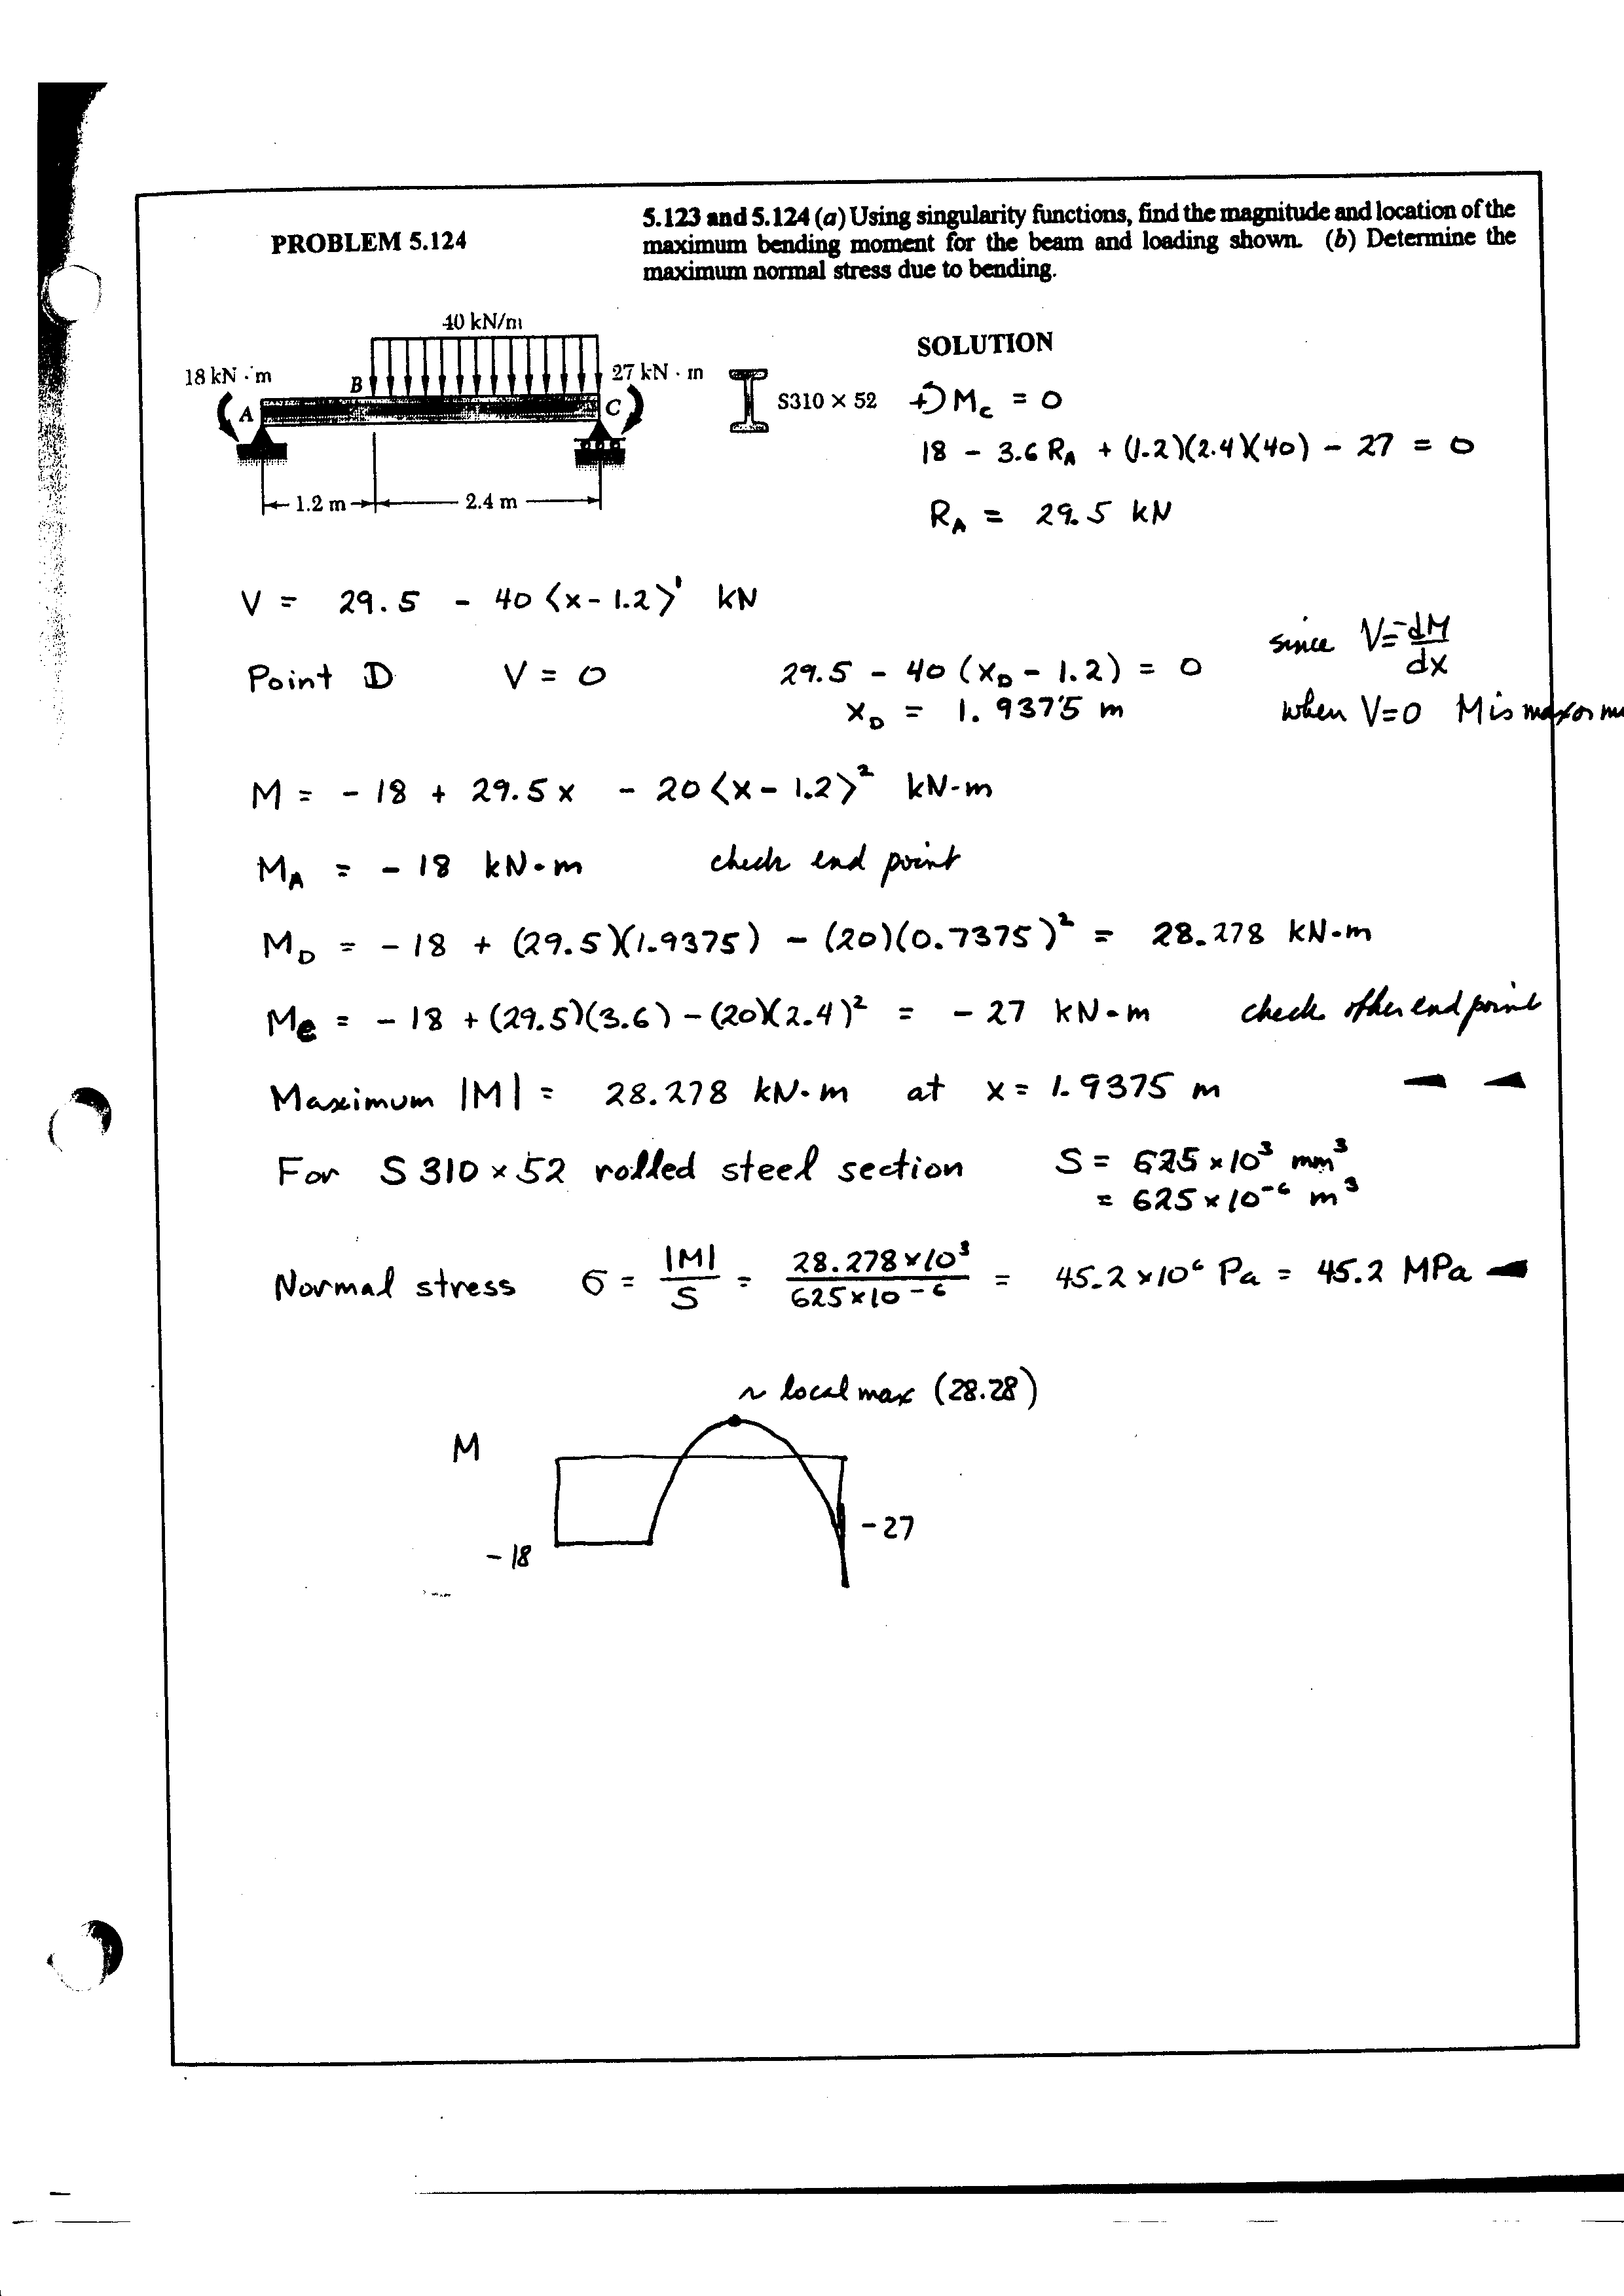 PROBLEM 5.124
5.123 and 5.124 (a) Using singularity functions, find the magnitude and location of the
maximum bending moment for the beam and loading shown. (b) Determine the
maximum normal stress due to bending.
40 kN/m
18 kN · m
B
27 kN · m
A
C
S310 × 52
1.2 m
2.4 m
SOLUTION
+⊃ M_C = 0
18 - 3.6 R_A + (1.2)(2.4)(40) - 27 = 0
R_A = 29.5 kN
V = 29.5 - 40 ⟨x - 1.2⟩¹ kN
since V = dM/dx
Point D V = 0 29.5 - 40 (x_D - 1.2) = 0
x_D = 1.9375 m
when V=0 M is max or
M = - 18 + 29.5 x - 20 ⟨x - 1.2⟩² kN·m
M_A = - 18 kN·m check end point
M_D = - 18 + (29.5)(1.9375) - (20)(0.7375)² = 28.278 kN·m
M_C = - 18 + (29.5)(3.6) - (20)(2.4)² = - 27 kN·m check other end point
Maximum |M| = 28.278 kN·m at x = 1.9375 m
For S 310 × 52 rolled steel section S = 625 × 10³ mm³
= 625 × 10⁻⁶ m³
Normal stress σ = |M|/S = 28.278 × 10³/625 × 10⁻⁶ = 45.2 × 10⁶ Pa = 45.2 MPa
~ local max (28.28)
M
-27
-18